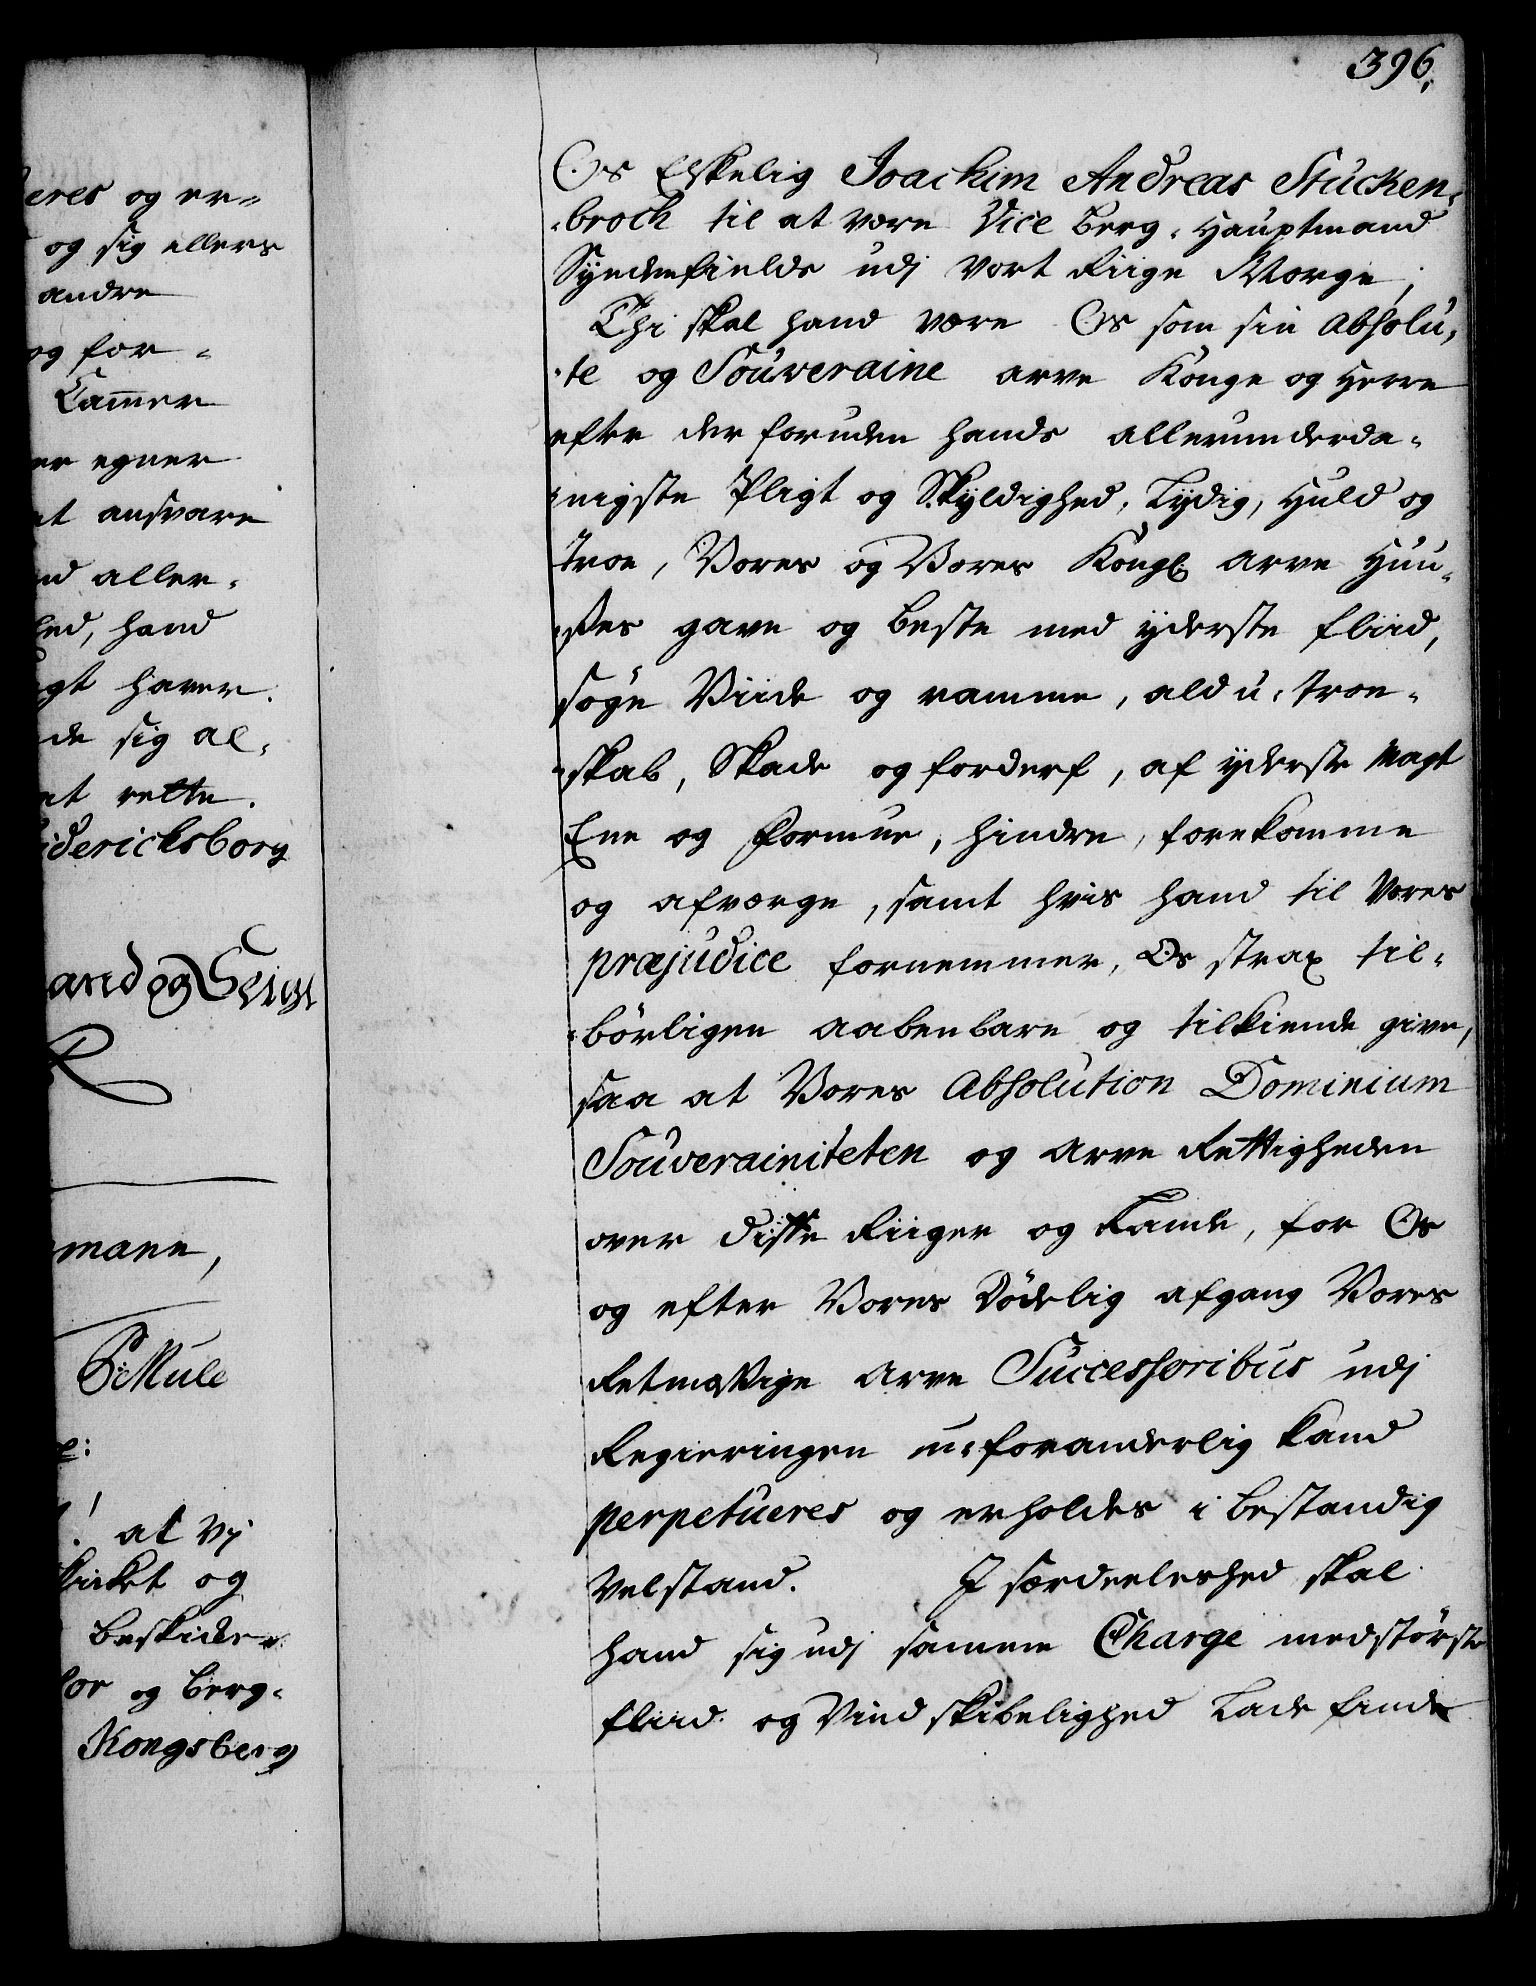 eres og er-
og sig ellers
andre
og for-
Cammer
er egner
at ansvare
nd aller-
hed, hand
gt haver.
de sig al-
at rette.
idericksborg
R
mann,
P: Mule
at Vi
skicket og
beskicker
or og Berg-
Kongsberg
396.
Os Elskelig Joachim Andreas Stucken-
-broch til at være Vice Berg-Hauptmand
Syndenfields udj Vort Riige Norge;
Thi skal hand være Os som sin absolu-
-te og Souveraine arve Konge og Herre
efter der foruden hands allerunderda-
-nigste Pligt og Skyldighed, Lydig, Huld og
Troe, Vores og Vores Kongl. arve Huu-
-ßes gavn og beste med yderste fliid,
søge Viide og ramme, ald u-troe-
-skab, Skade og forderf, af yderste Magt
Evne og Formue, hindre, forekomme
og afværge, samt hvis hand til Vores
præjudice fornemmer, Os strax til-
-børligen aabenbare og tilkiende give,
saa at Vores absolution Dominium
Souverainiteten og arve Rettigheden
over disse Riiger og Lande, for Os
og efter Vores Dødelig afgang Vores
Retmæssige arve Successoribus udj
Regieringen u-foranderlig kand
perpetueres og erholdes i bestandig
Velstand. I særdeeleshed skal
hand sig udj samme Charge med største
fliid og Vindskibelighed Lade finde